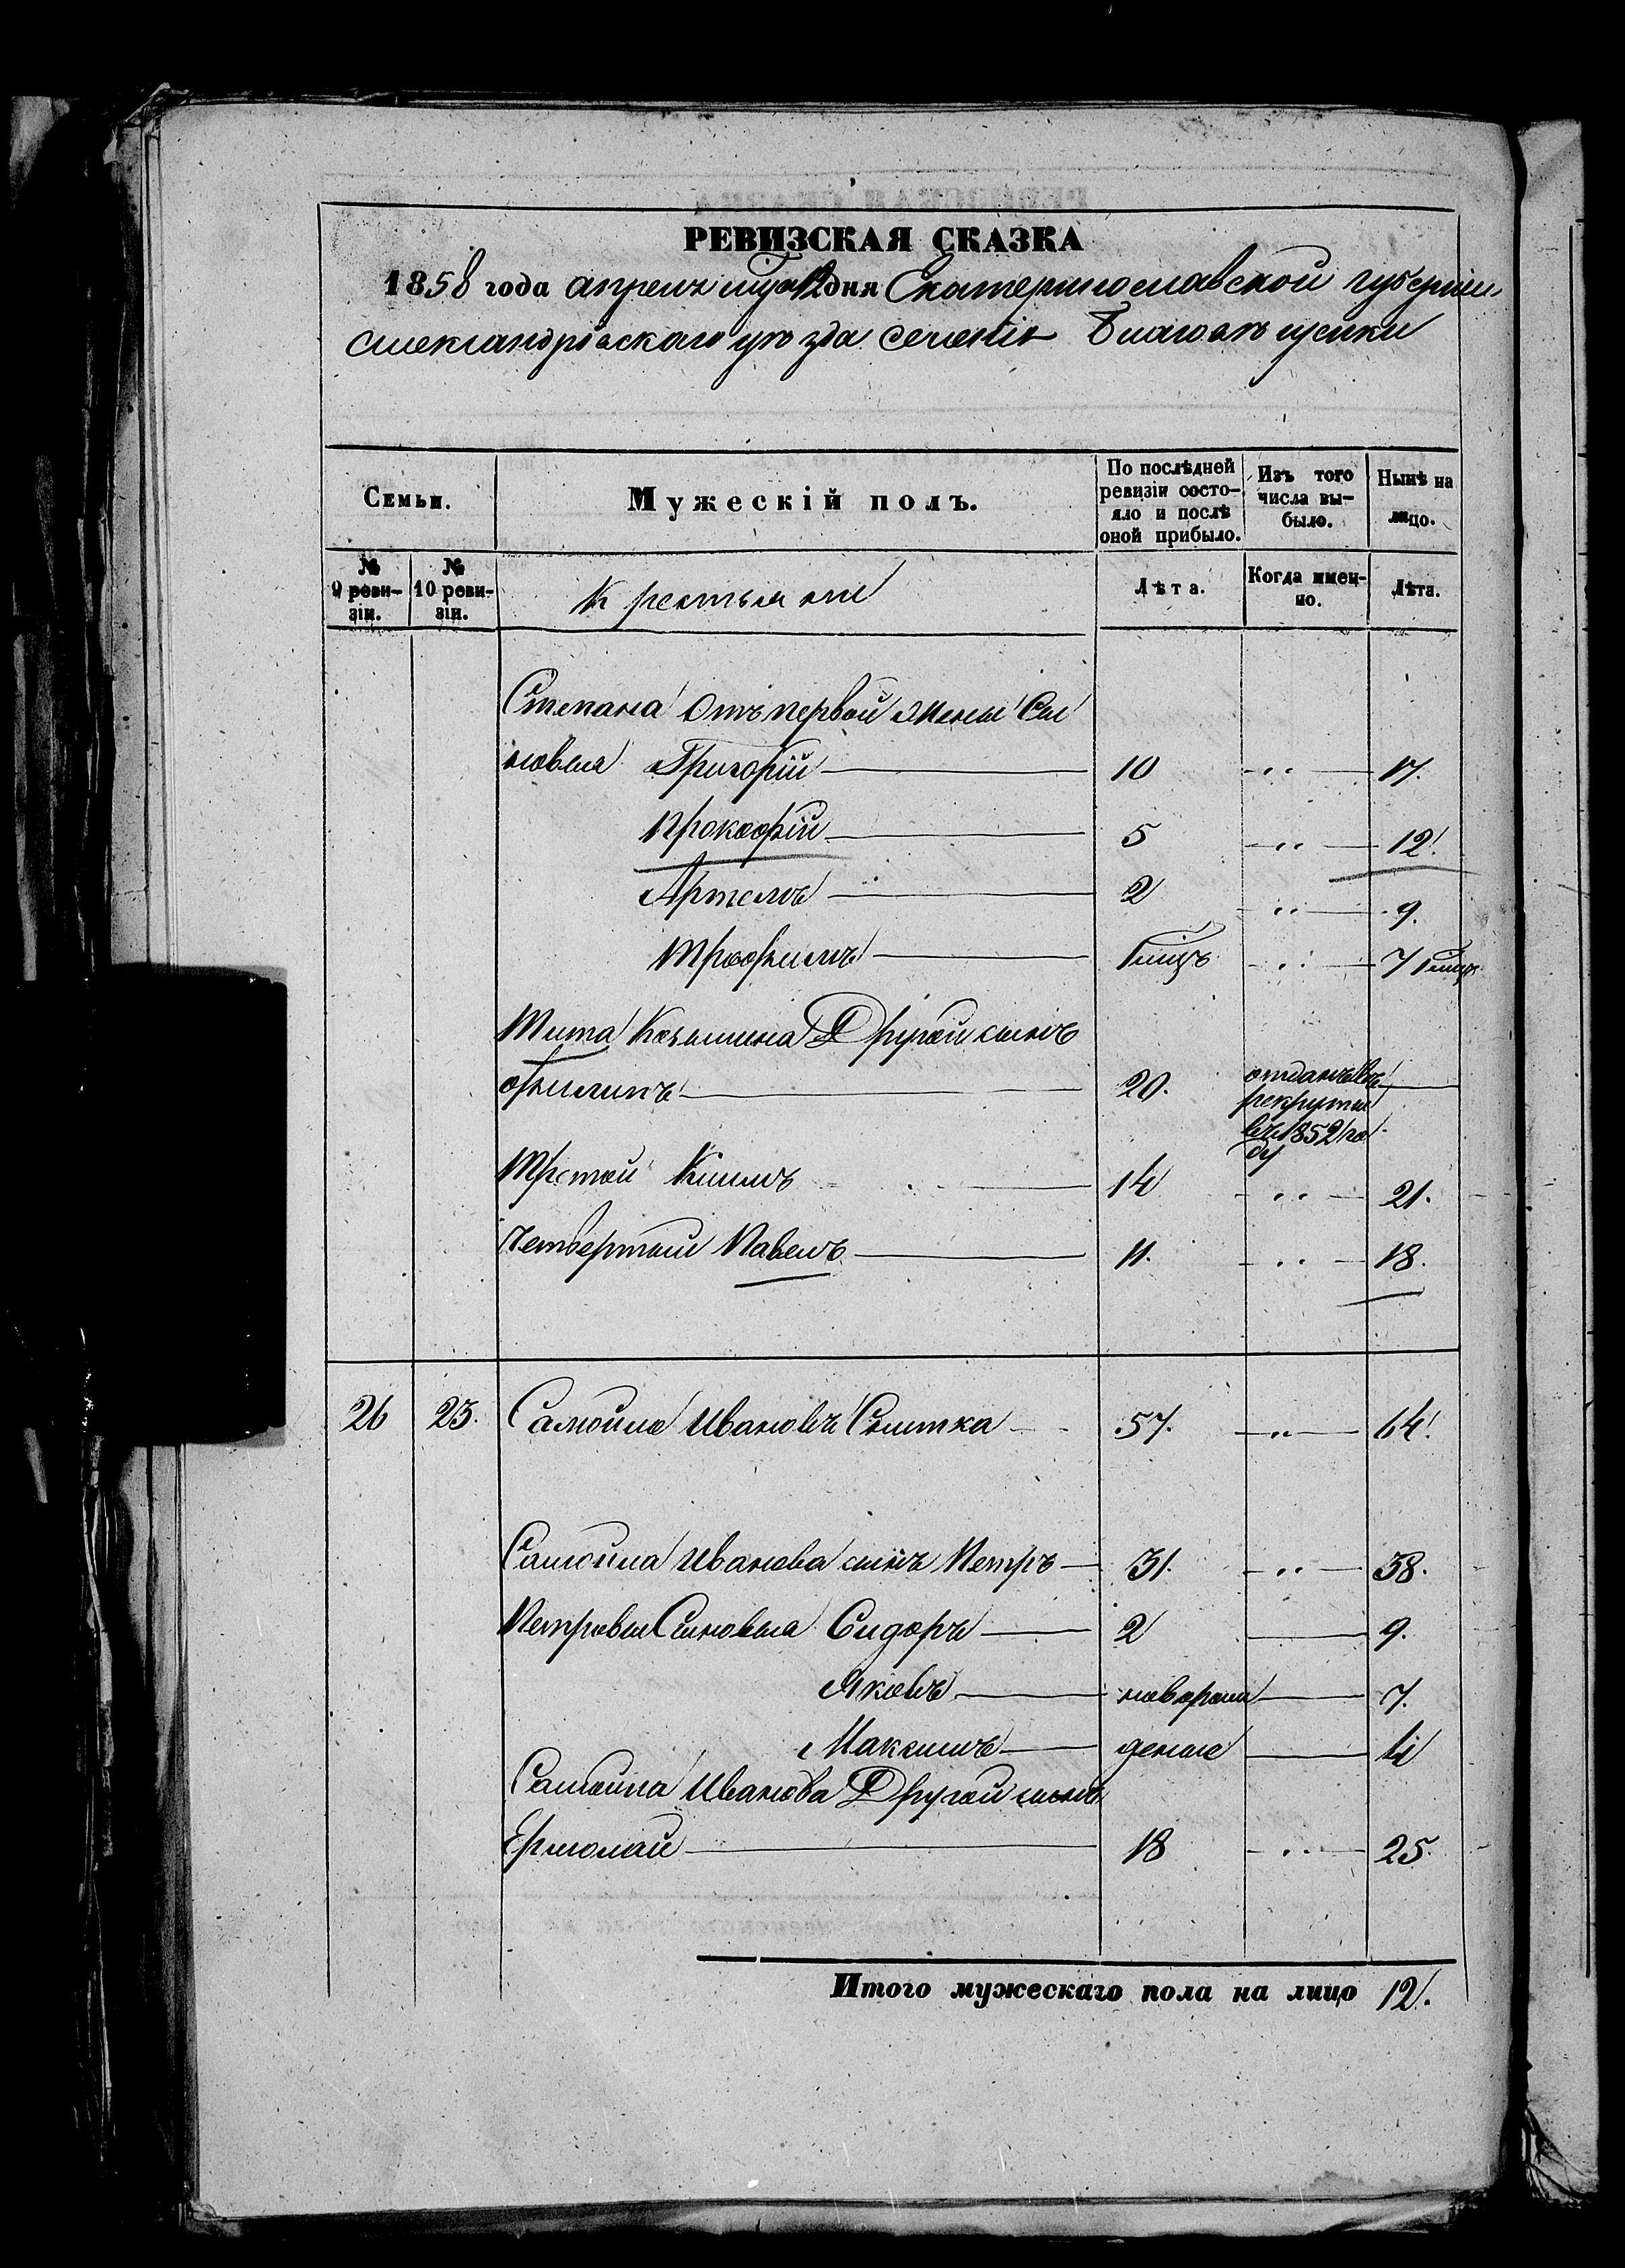 РЕВИЗСКАЯ СКАЗКА
1858 года апреля 12 дня Екатеринославской губерніи
Александровскаго уѣзда селенія Благовѣщенки
Семьи.
Мужескій полъ.
По послѣдней ревизіи состояло и послѣ оной прибыло.
Изъ того числа выбыло.
Нынѣ на лицо.
№ 9 ревизіи.
№ 10 ревизіи.
Крестьяне
Лѣта.
Когда именно.
Лѣта.
Степана отъ первой жены Сы
новья Григорій 10 „ 17.
Прокофій 5 „ 12.
Артемъ 2 „ 9.
Трофимъ 1 мцъ „ 7 1 мцъ
Тита Козьмина Другой сынъ
Филипъ 20. отданъ въ
рекруты
въ 1852 го
ду
Третій Климъ 14 „ 21.
Четвертый Павелъ 11. „ 18.
26 23. Самойла Ивановъ 57. „ 64.
Самойла Иванова сынъ Петръ 31. „ 38.
Петровы Сыновья Сидоръ 2 9.
Яковъ новорож 7.
Максимъ деные
Самойла Иванова Другой сынъ
Ермолай 18 „ 25.
Итого мужескаго пола на лицо 12.